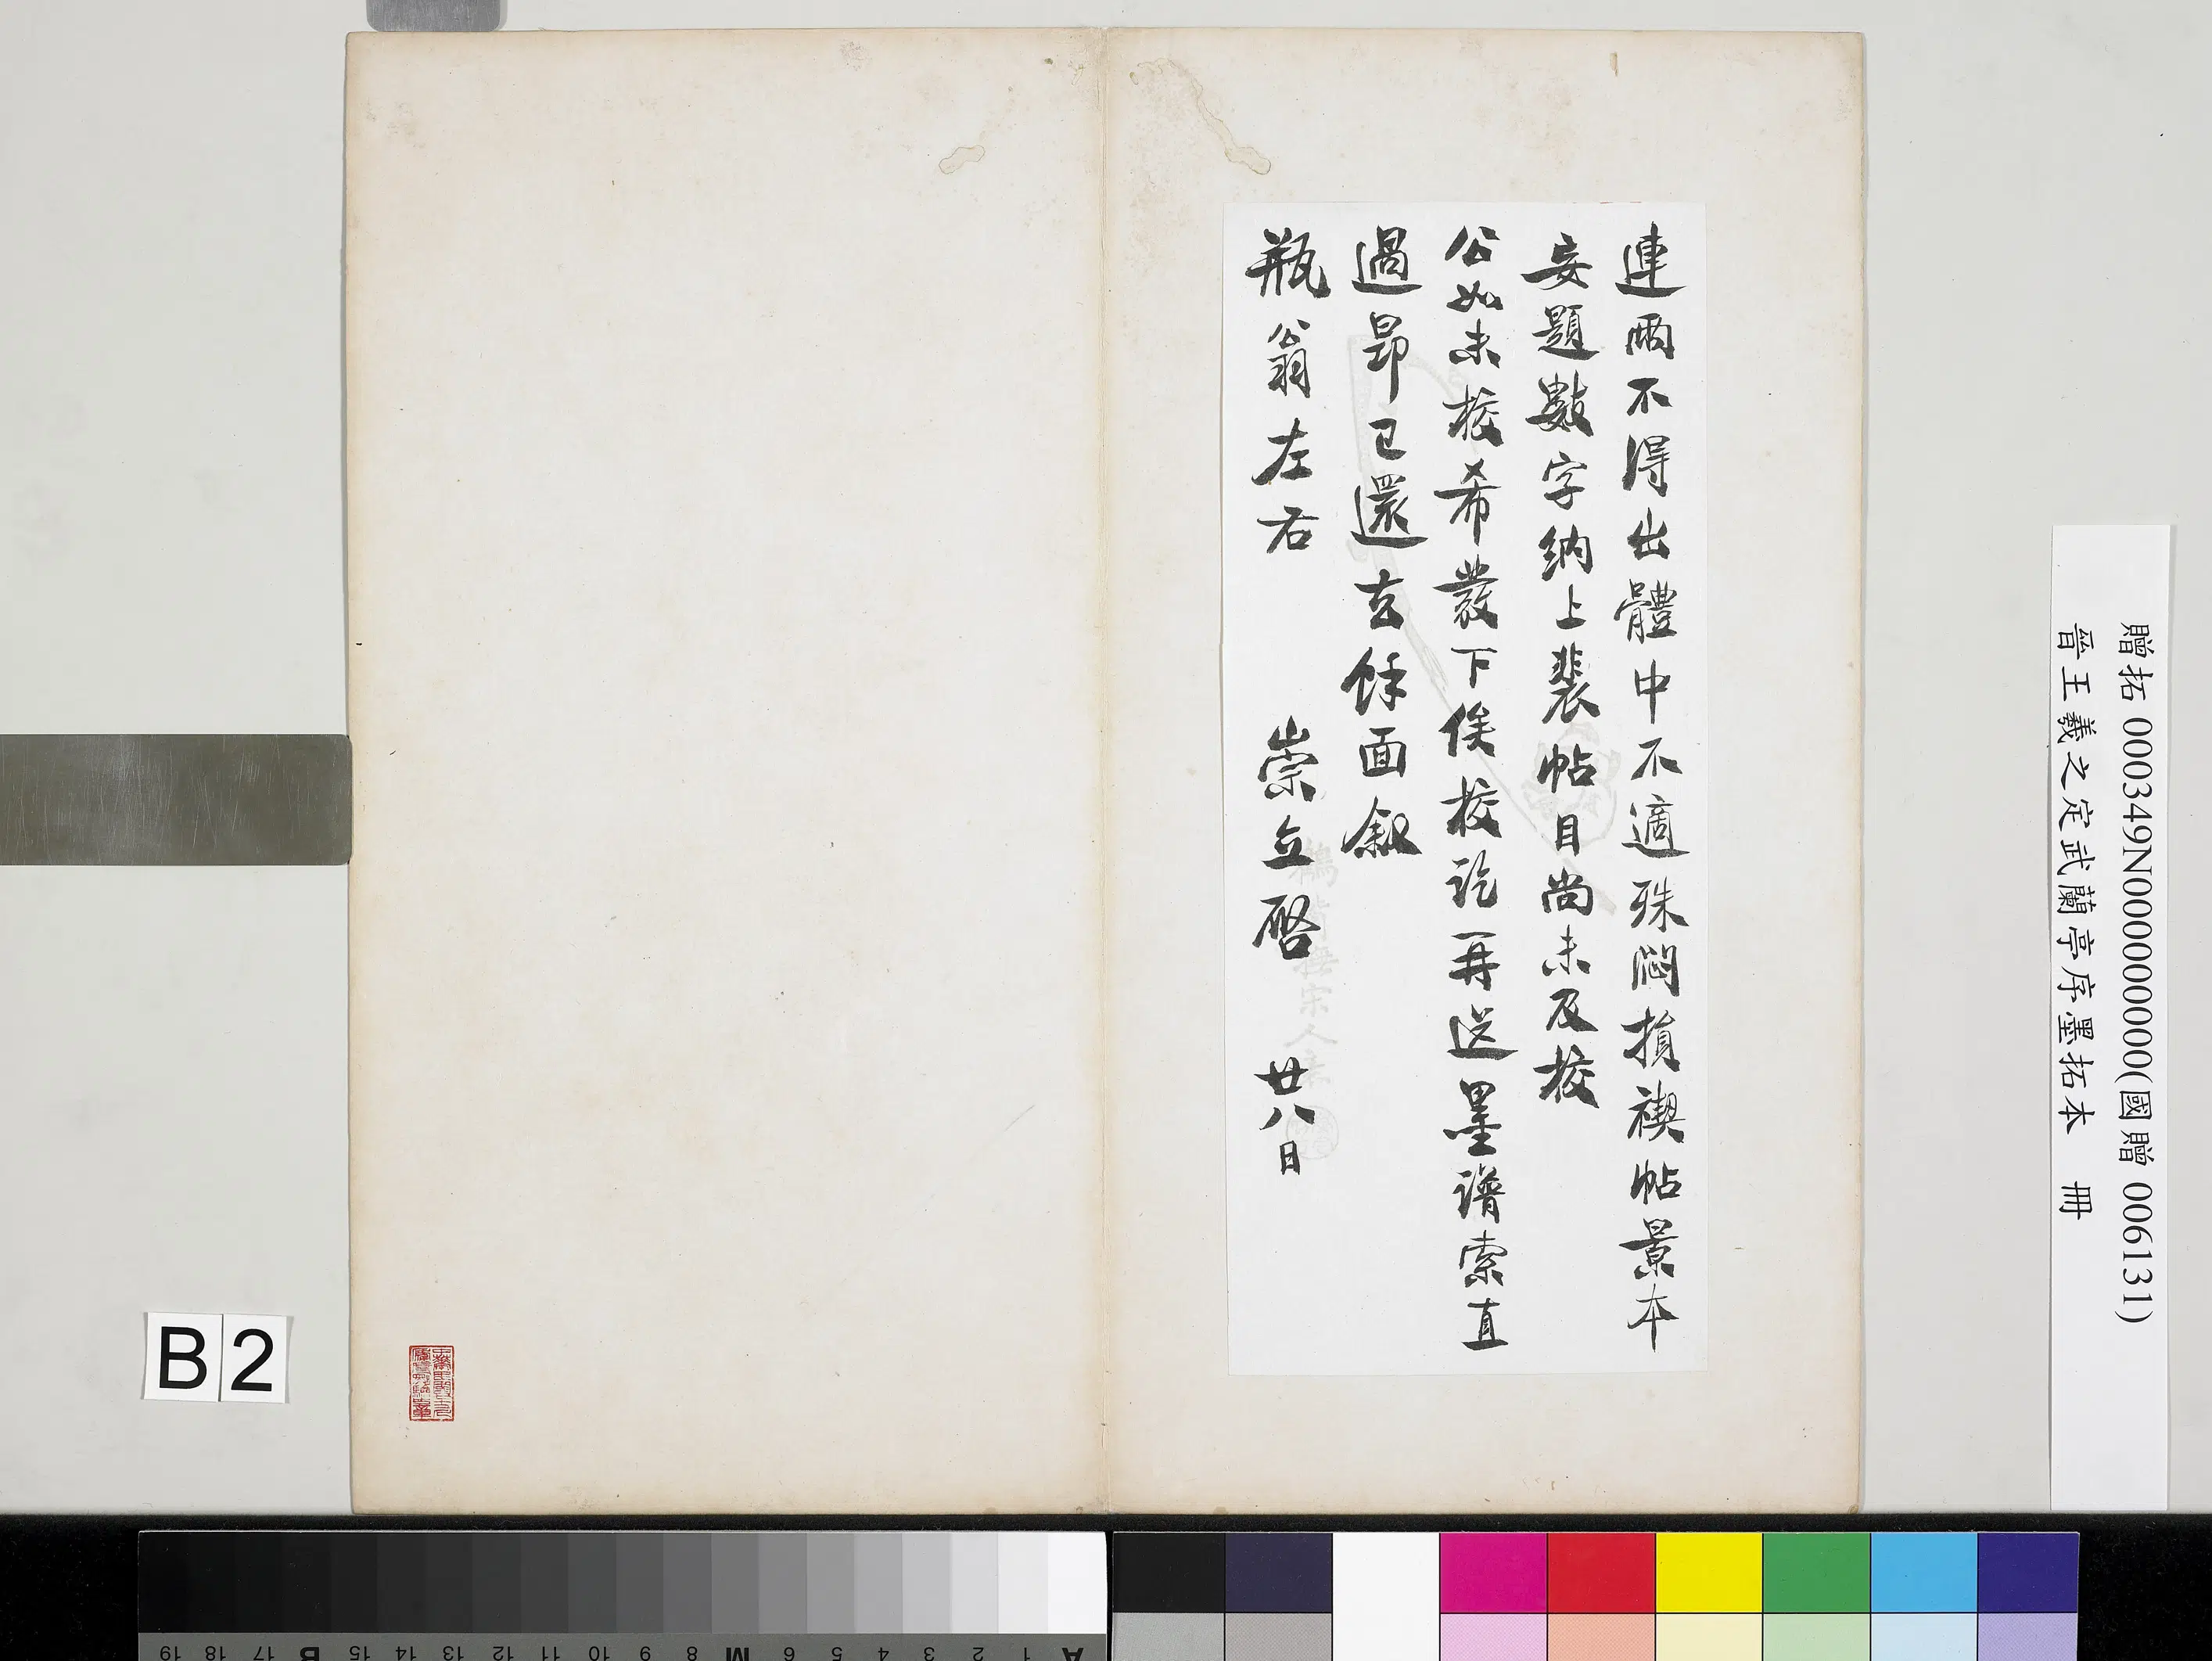 連雨不得出體中不適殊悶損禊帖景本
妄題數字納上裴帖目尚未及校
公如未校希發下俟校訖再送墨譜索直
過昻已還去餘面敘
瓶翁左右 崇立啓 廿八日
贈拓 000349N000000000(國贈 006131)
晉王羲之定武蘭亭序墨拓本 冊
B2
A 1 2 3 4 5 6 M 8 9 10 11 12 13 14 15 B 17 18 19